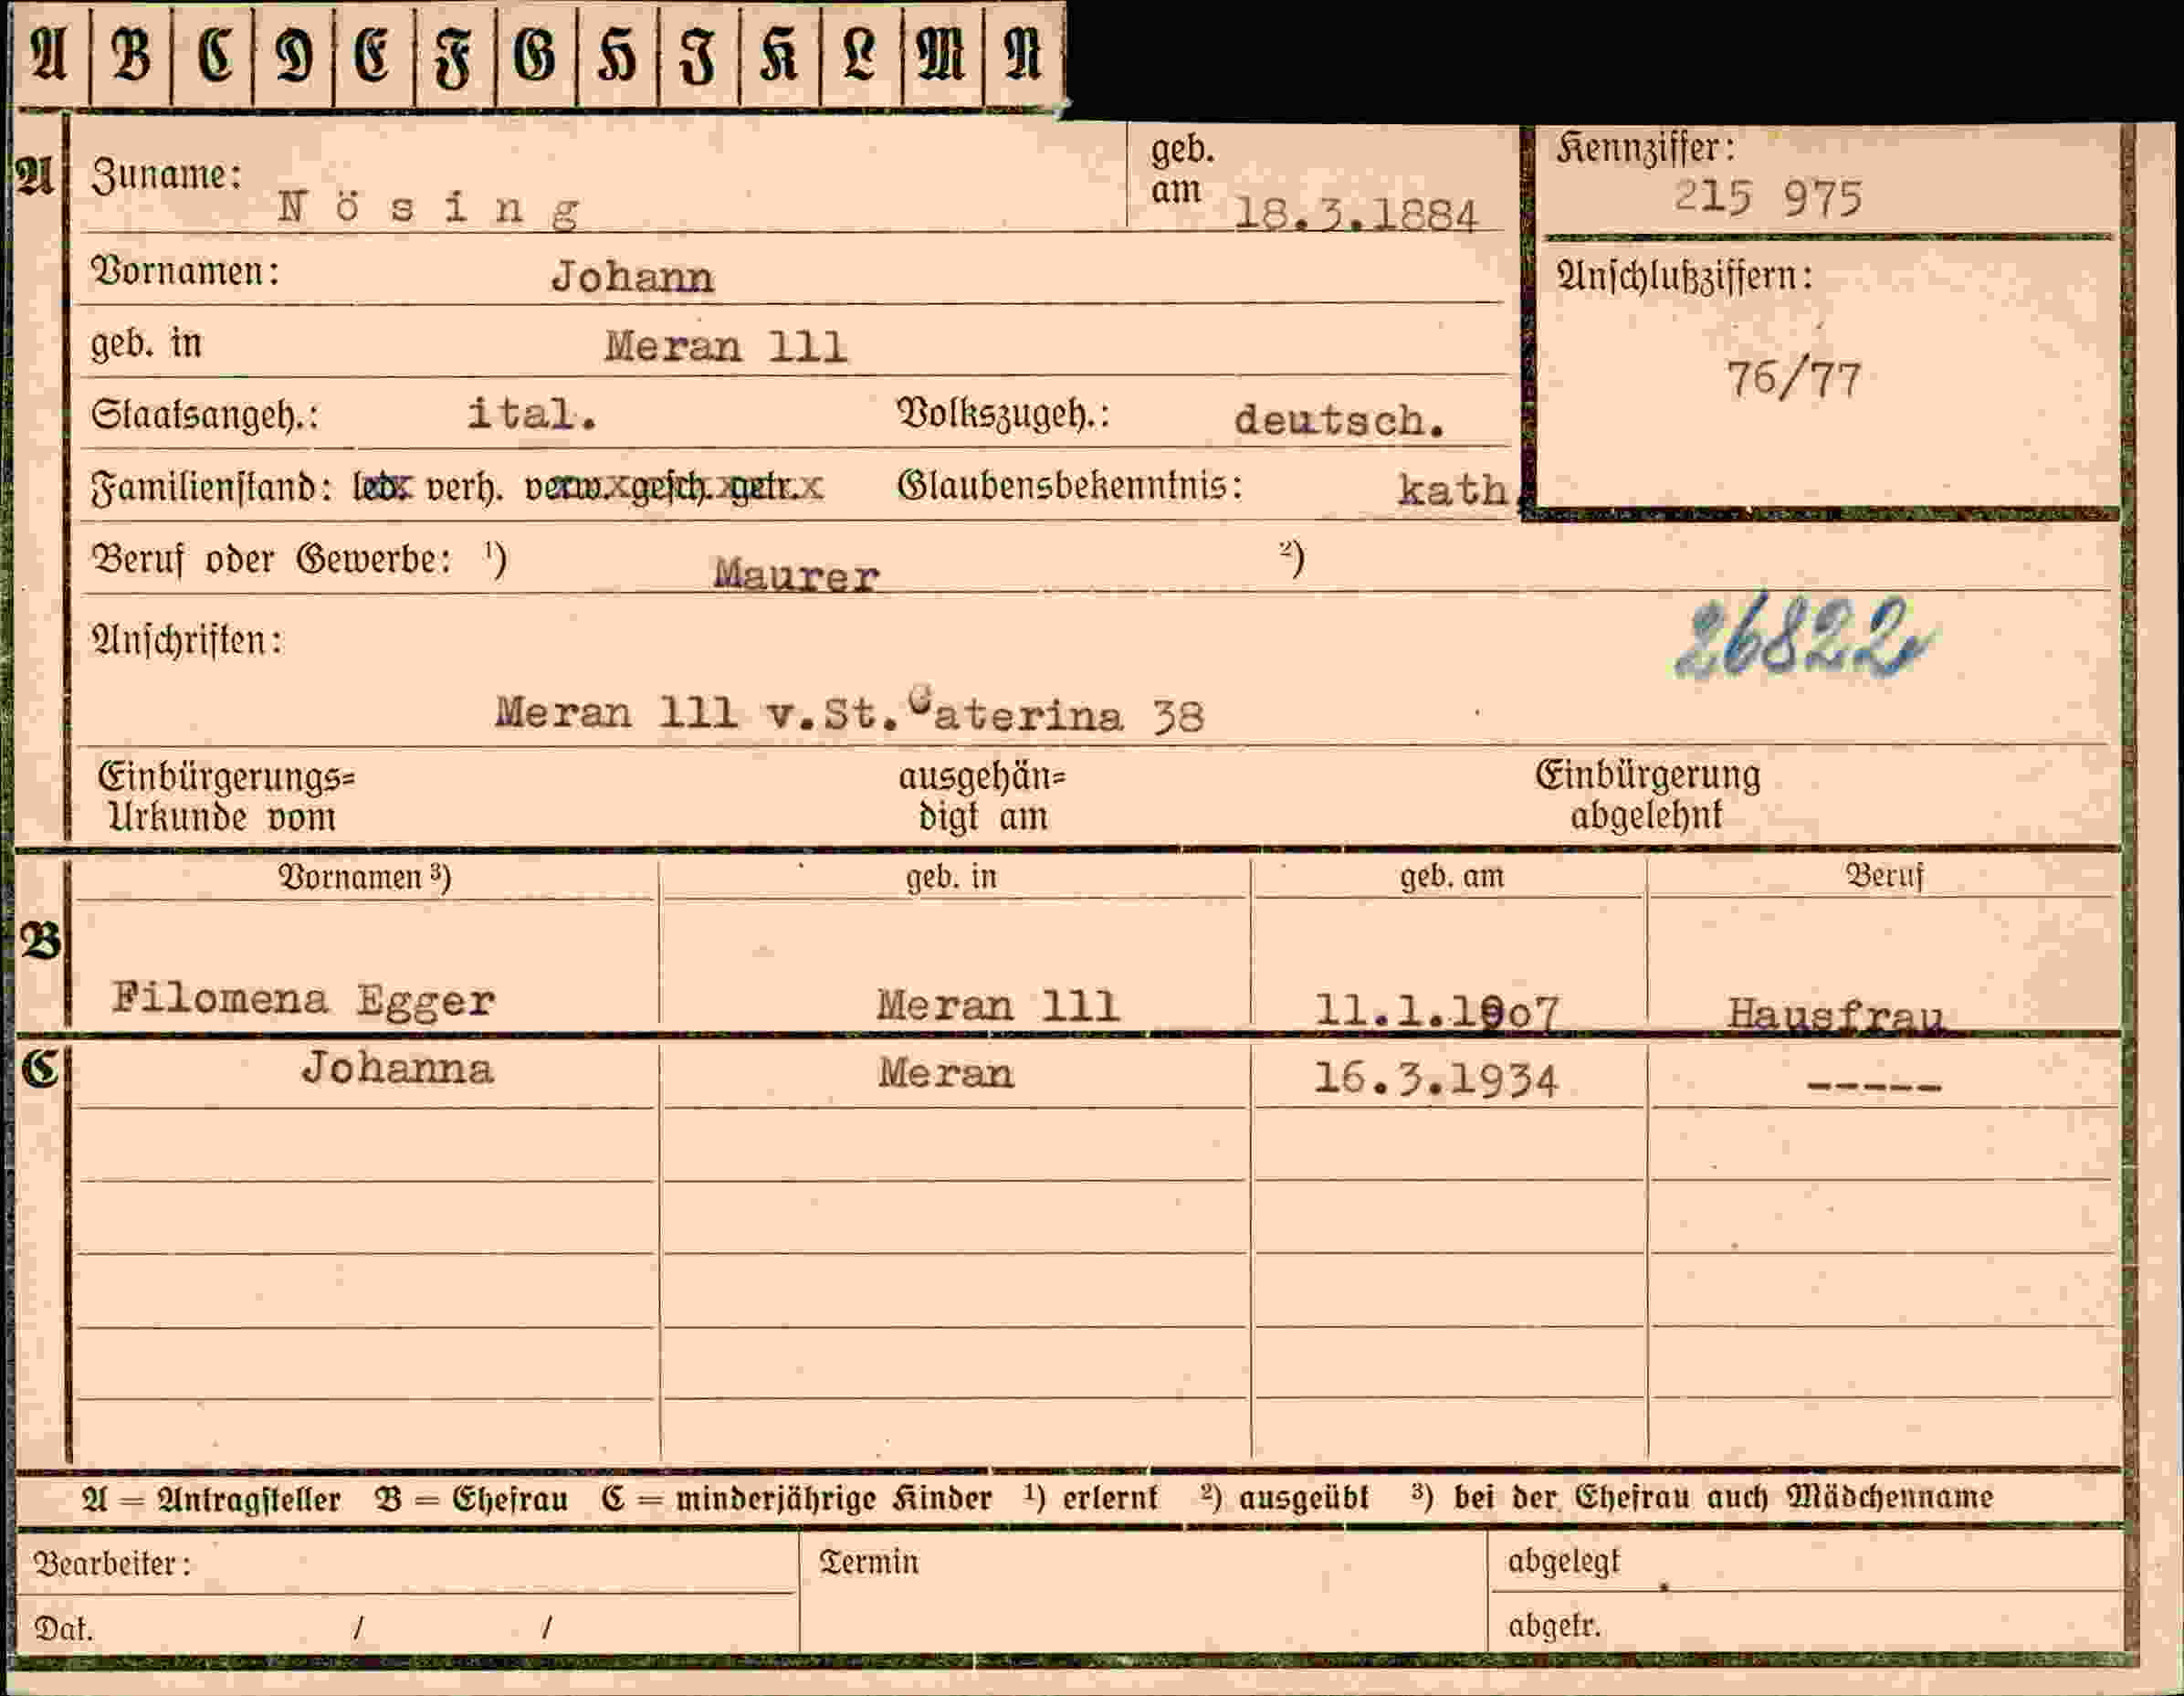 A B C D E F G H I K L M N
A Zuname: Nösing geb. am 18.3.1884 Kennziffer: 215 975
Vornamen: Johann Anschlußziffern:
geb. in Meran 111 76/77
Staatsangeh.: ital. Volkszugeh.: deutsch.
Familienstand: led. verh. verw. gesch. getr. Glaubensbekenntnis: kath.
Beruf oder Gewerbe: ¹) Maurer ²)
Anschriften: 26822
Meran 111 v.St.Caterina 38
Einbürgerungs= ausgehän= Einbürgerung
Urkunde vom digt am abgelehnt
Vornamen ³) geb. in geb. am Beruf
B
Filomena Egger Meran 111 11.1.1907 Hausfrau
C Johanna Meran 16.3.1934 -----
A = Antragsteller B = Ehefrau C = minderjährige Kinder ¹) erlernt ²) ausgeübt ³) bei der Ehefrau auch Mädchenname
Bearbeiter: Termin abgelegt
Dat. / / abgetr.